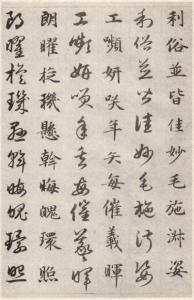 利俗並皆佳妙毛施淑姿
利俗並皆佳妙毛施淑姿
工嚬妍咲年矢每催羲暉
工嚬妍咲年矢每催羲暉
朗曜琁璣懸斡晦魄環照
朗曜琁璣懸斡晦魄環照